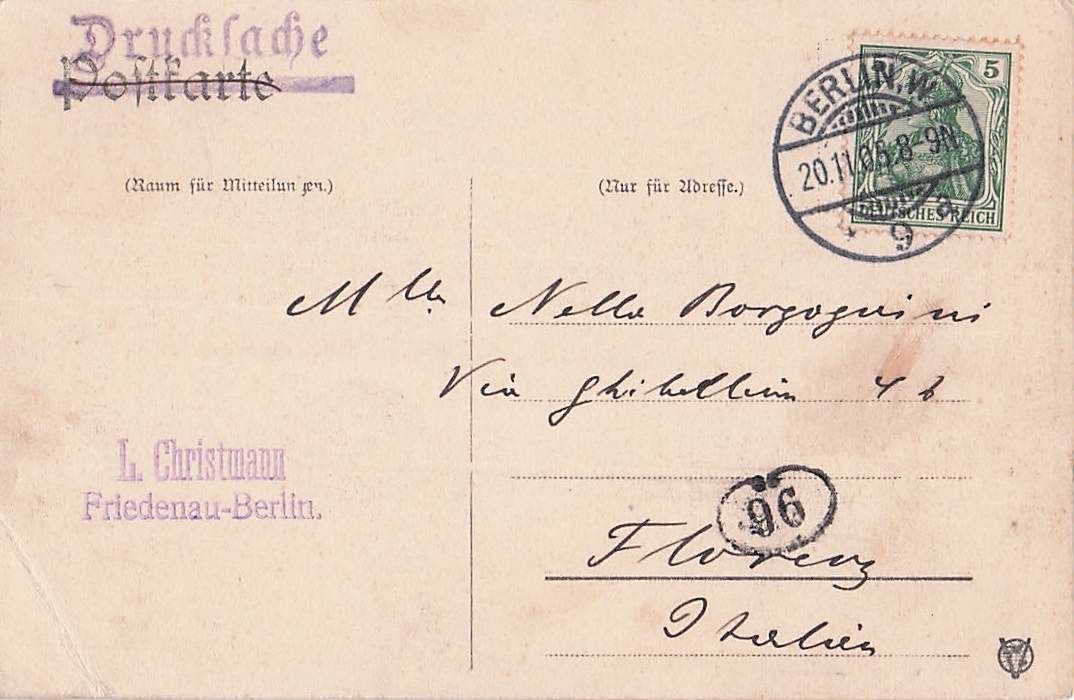 Drucksache
Postkarte
(Raum für Mitteilungen.)
(Nur für Adresse.)
5
BERLIN, W
20.11.05.8-9N
9 a
DEUTSCHES REICH
Mlle Nella Borgognini
Via Ghibellina 4 b
L. Christmann
Friedenau-Berlin.
96
Florenz
Italien